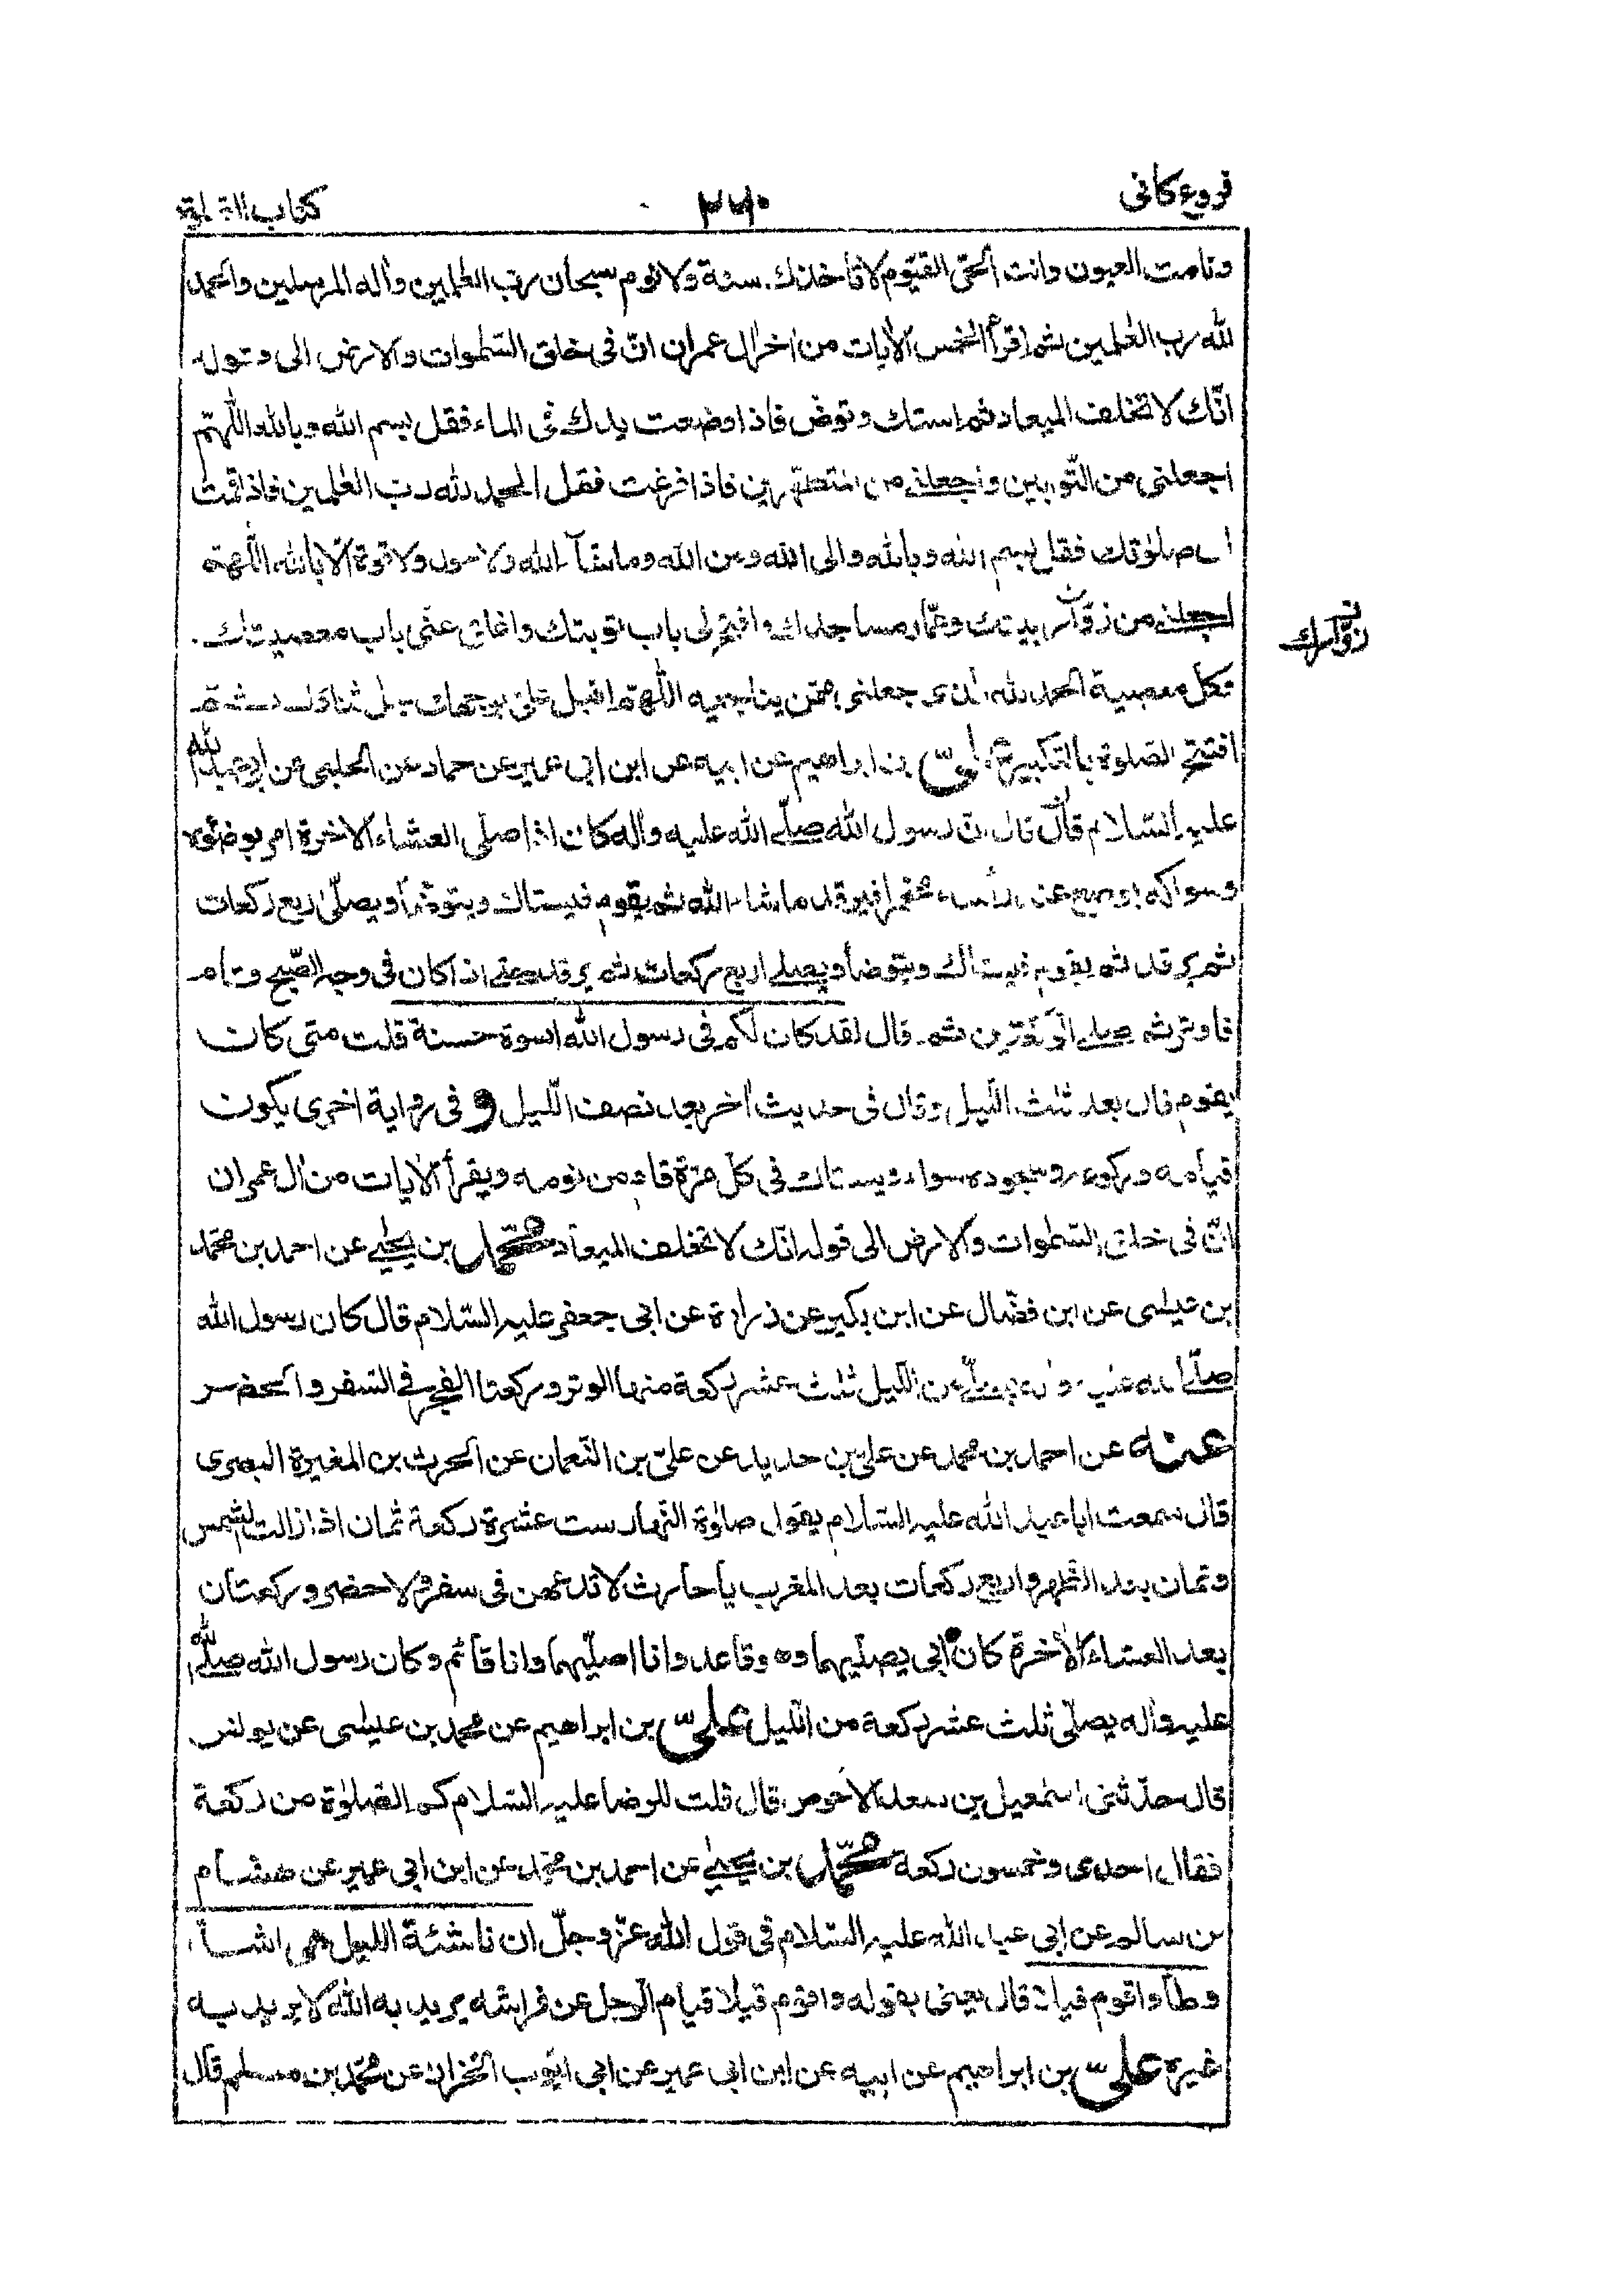 فروع كافى
٢٦٠
كتاب الصلوة
ونامت العيون وانت الحىّ القيّوم لا تاخذك سنة ولا نوم سبحان رب العٰلمين واله المرسلين والحمد
لله رب العٰلمين ثم اقرأ الخمس الاٰيات من اخر اٰل عمران انّ فى خلق السّمٰوات والارض الى قوله
انّك لا تخلف الميعاد ثم استك وتوضّ فاذا وضعت يدك فى الماء فقل بسم الله وبالله اللّٰهمّ
اجعلنى من التّوابين واجعلنى من المتطهّرين فاذا فرغت فقل الحمد لله رب العٰلمين فاذا قمت
الى صلوٰتك فقل بسم الله وبالله والى الله ومن الله وما شآء الله ولا حول ولا قوة الّا بالله اللّٰهمّ
اجعلنى من زوّار بيتك وعمّار مساجدك وافتح لى باب توبتك واغلق عنّى باب معصيتك
وكل معصية الحمد لله الذى جعلنى ممّن يناجيه اللّٰهمّ اقبل علىّ بوجهك جل ثناؤك ثم
افتتح الصّلوة بالتكبير علىّ بن ابراهيم عن ابيه عن ابن ابى عمير عن حماد عن الحلبى عن ابى عبد الله
عليه السّلام قال قال ان رسول الله صلّى الله عليه واٰله كان اذا صلّى العشاء الاخرة امر بوضوئه
وسواكه يوضع عند راسه مخمرا فيرقد ما شاء الله ثم يقوم فيستاك ويتوضأ ويصلّى اربع ركعات
ثم يرقد ثم يقوم فيستاك ويتوضأ ويصلى اربع ركعات ثم يرقد حتى اذا كان فى وجه الصّبح قام
فاوتر ثم صلى الركعتين ثم قال لقد كان لكم فى رسول الله اسوة حسنة قلت متى كان
يقوم قال بعد ثلث الليل وقال فى حديث اٰخر بعد نصف اللّيل وفى رواية اخرى يكون
قيامه وركوعه وسجوده سواء ويستاك فى كلّ مرّة قام من نومه ويقرأ الاٰيات من اٰل عمران
انّ فى خلق السّمٰوات والارض الى قوله انّك لا تخلف الميعاد محمّد بن يحيٰى عن احمد بن محمّد
بن عيسٰى عن ابن فضّال عن ابن بكير عن زرارة عن ابى جعفر عليه السّلام قال كان رسول الله
صلّى الله عليه واٰله يصلّى من اللّيل ثلث عشر ركعة منها الوتر وركعتا الفجر فى السّفر والحضر
عنه عن احمد بن محمد عن علىّ بن حديد عن علىّ بن النّعمان عن الحرث بن المغيرة البصرى
قال سمعت ابا عبد الله عليه السّلام يقول صلوٰة النّهار ست عشرة ركعة ثمان اذا زالت الشمس
وثمان بعد الظهر واربع ركعات بعد المغرب يا حارث لا تدعهن فى سفر ولا حضر وركعتان
بعد العشاء الاٰخرة كان ابى يصلّيهما وهو قاعد وانا اصلّيهما وانا قائم وكان رسول الله صلى الله
عليه واٰله يصلّى ثلث عشر ركعة من اللّيل علىّ بن ابراهيم عن محمد بن عيسٰى عن يونس
قال حدّثنى اسمٰعيل بن سعد الاحوص قال قلت للرضا عليه السّلام كم الصّلوٰة من ركعة
فقال احدى وخمسون ركعة محمّد بن يحيٰى عن احمد بن محمّد عن ابن ابى عمير عن هشام
بن سالم عن ابى عبد الله عليه السّلام فى قول الله عزّ وجلّ ان ناشئة الليل هى اشدّ
وطأ واقوم قيلا قال يعنى بقوله واقوم قيلا قيام الرجل عن فراشه يريد به الله لا يريد به
غيره علىّ بن ابراهيم عن ابيه عن ابن ابى عمير عن ابى ايّوب الخزاز عن محمّد بن مسلم قال
زوّارك